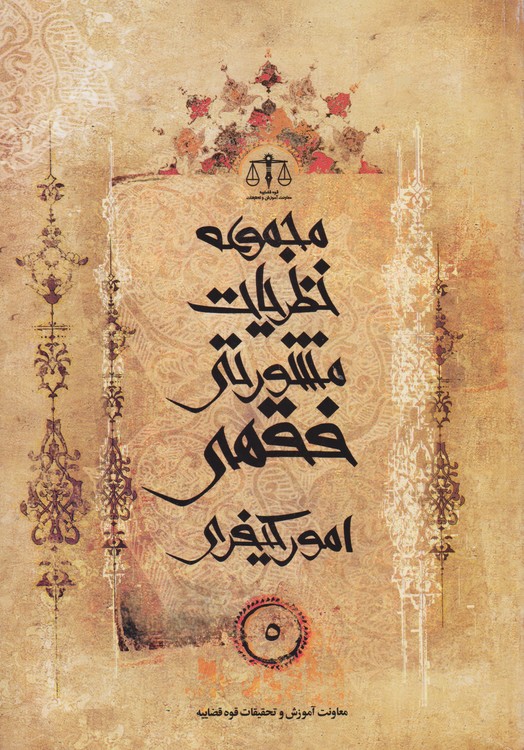 قوه قضاییه
معاونت آموزش و تحقیقات
مجموعه
نظریات
مشورتی
فقهی
امور کیفری
۵
معاونت آموزش و تحقیقات قوه قضاییه